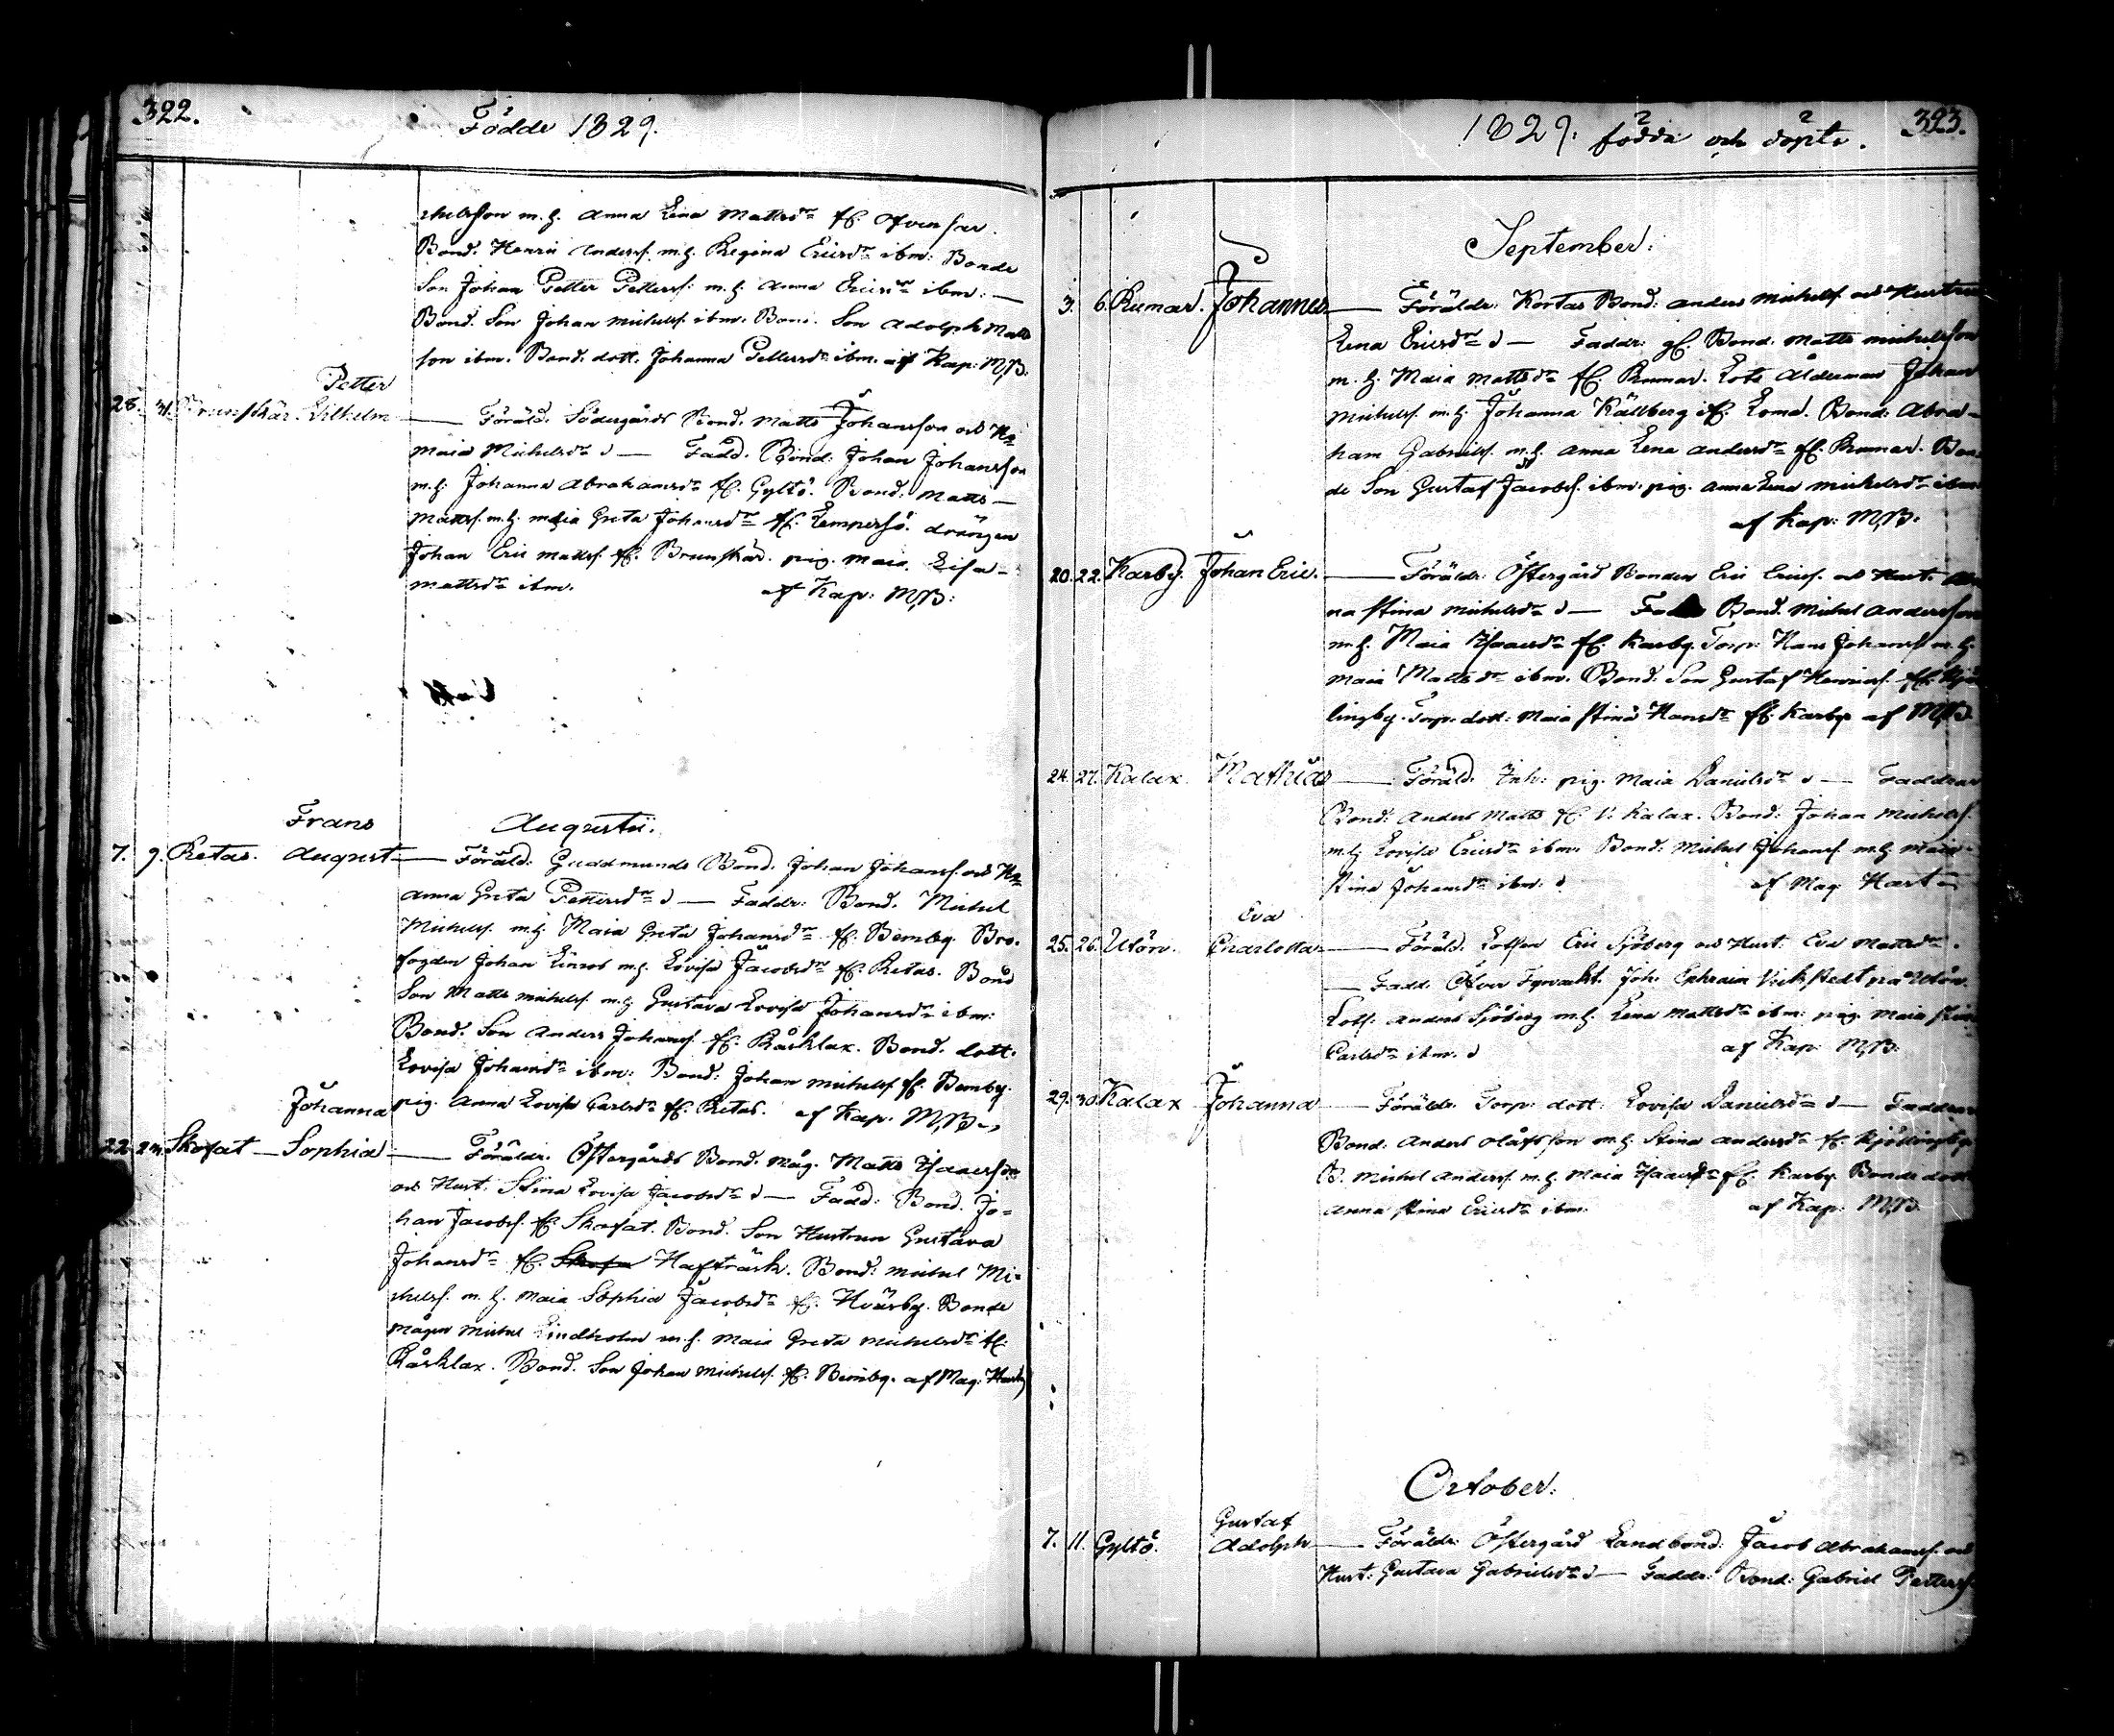 322.
Födde 1829.
chelsson m. h. Anna Lena Mattsdr fr.
Bond. Henric Anderss. m. h. Regina Ericsdr ibm: Bonde
Son Johan Petter Petterss: m. h. Anna Ericsdr ibm: —
Bond. Son Johan Michelss. ibm. Bond. Son Adolph Matts
son ibm. Bond. dott. Johanna Pettersdr ibm. af Kap: M,B.
Petter
28. 31. Brunskär. Vilhelm — Föräld. Södergårds Bond. Matts Johansson och Hu
Maia Michelsdr — Fadd. Bond: Johan Johansson
m. h. Johanna Abrahamsdr fr. Gyltö. Bond. Matts —
Mattss. m. h. Maia Greta Johansdr fr. Lempersö. drängen
Johan Eric Mattss. fr. Brunskär. pig. Maia Lisa —
Mattsdr ibm. af Kap: M,B:
Augusti.
Frans
7. 9. Retas. August — Föräld: Guddmunds Bond. Johan Johanss. och Hu
Anna Greta Pettersdr — Faddr: Bond. Michel
Michelss. m. h. Maia Greta Johansdr fr. Benby. Bro-
fogden Johan Linros m. h. Lovisa Jacobsdr fr. Retas. Bond
Son Matts Michelss. m. h. Gustava Lovisa Johansdr ibm:
Bond. Son Anders Johanss. fr. Kårklax. Bond. dott.
Lovisa Johansdr ibm: Bond: Johan Michelss. fr. Benby.
pig. Anna Lovisa Carlsdr fr. Retas. af Kap. M,B.
Johanna
22. 23. Skofat — Sophia — Föräldr. Östergårds Bond. Måg. Matts Isaacsson
och Hust. Stina Lovisa Jacobsdr — Fadd: Bond. Jo-
han Jacobss. fr. Skofat. Bond. Son Hustrun Gustava
Johansdr fr. Skofa Hafträsk. Bond: Michel Mi-
chelss. m. h. Maia Sophia Jacobsdr fr. Hväsby. Bonde
mågen Michel Lindholm m. h. Maia Greta Michelsdr fr.
Kårklax. Bond. Son Johan Michelss. fr. Benby. af Mag:
1829. födda och döpte. 323.
September.
3. 6. Rumar. Johannes — Föräldr: Kortas Bond: Anders Michelss. och Hustrun
Lena Ericsdr — Faddr: gl. Bond. Matts Michelsson
m. h. Maia Mattsdr fr. Rumar. Lots Ålderman Johan
Michelss. m. h. Johanna Källberg fr. Lomä. Bond: Abra-
ham Gabrielss. m. h. Anna Lena Andersdr fr. Rumar. Bon-
de Son Gustaf Jacobss. ibm: pig. Anna Lena Michelsdr ibm
af Kap: M,B:
20. 22. Karby. Johan Eric. — Föräldr: Östergård Bonden Eric Ericss. och Hust: An
na Stina Michelsdr — Bond. Michel Andersson
m. h. Maia Isaacsdr fr. Karby. Torp: Hans Johanss. m. h.
Maia Mattsdr ibm. Bond: Son Gustaf Henricss. fr.
lingby. Torp: dott: Maia Stina Hansdr fr. Karby af M,B
24. 27. Kalax. Mathias — Föräld. Inh: pig. Maia Danielsdr — Faddrar
Bond: Anders Matts fr. V. Kalax. Bond: Johan Michelss.
m. h. Lovisa Ericsdr ibm: Bond: Michel Johanss. m. h. Maia
Stina Johansdr ibm: af Mag: Hast
Eva
25. 26. Utön. Charlotta — Föräld. Lotsen Eric Sjöberg och Hust: Eva Mattsdr
— Fadd. Öfver Fyrvakt. Joh. Ephraim Vickstedt på Utön.
Lots: Anders Sjöberg m. h. Lena Mattsdr ibm: pig. Maia Stina
Carlsdr ibm. af Kap: M,B:
29. 30. Kalax Johanna — Föräldr. Torp: dott: Lovisa Danielsdr — Faddrar
Bond: Anders Olofsson m. h. Stina Andersdr fr. Kjöllingby
B. Michel Anderss. m. h. Maia Isaacsdr fr. Karby. Bonde dott
Anna Stina Ericsdr ibm: af Kap: M,B.
October.
Gustaf
7. 11. Gyltö. Adolph — Föräldr: Östergård Landbond: Jacob Abrahamss. och
Hust: Gustava Gabrielsdr — Faddr: Bond: Gabriel Petterss.